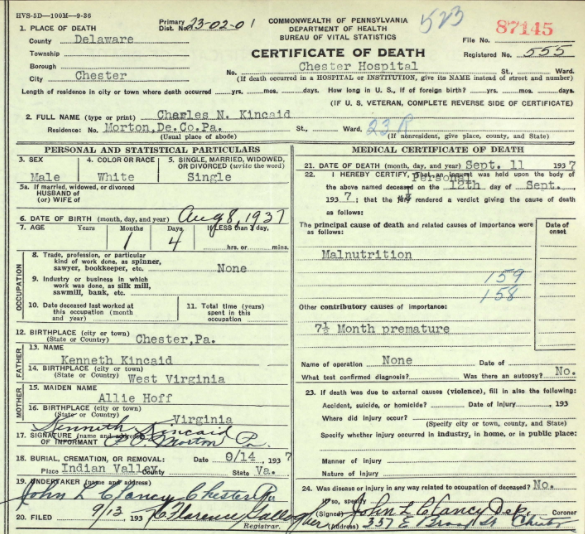 HVS-5D—100M—9-36
Primary Dist. No. 23-02-01
COMMONWEALTH OF PENNSYLVANIA
DEPARTMENT OF HEALTH
BUREAU OF VITAL STATISTICS
523
87145
File No.
CERTIFICATE OF DEATH
Registered No. 555
1. PLACE OF DEATH
County Delaware
Township
Borough
City Chester
No. Chester Hospital St., Ward.
(If death occurred in a HOSPITAL or INSTITUTION, give its NAME instead of street and number)
Length of residence in city or town where death occurred yrs. mos. days. How long in U. S., if of foreign birth? yrs. mos. days.
(IF U. S. VETERAN, COMPLETE REVERSE SIDE OF CERTIFICATE)
2. FULL NAME (type or print) Charles N. Kincaid
Residence: No. Morton,De.Co.Pa. St., Ward,
(Usual place of abode) (If nonresident, give place, county, and State)
PERSONAL AND STATISTICAL PARTICULARS
3. SEX Male
4. COLOR OR RACE White
5. SINGLE, MARRIED, WIDOWED, OR DIVORCED (write the word) Single
5a. If married, widowed, or divorced
HUSBAND of
(or) WIFE of
6. DATE OF BIRTH (month, day, and year) Aug 8, 1937
7. AGE Years Months 1 Days 4 If LESS than 1 day, hrs. or mins.
OCCUPATION
8. Trade, profession, or particular
kind of work done, as spinner,
sawyer, bookkeeper, etc. None
9. Industry or business in which
work was done, as silk mill,
sawmill, bank, etc.
10. Date deceased last worked at
this occupation (month
and year)
11. Total time (years)
spent in this
occupation
12. BIRTHPLACE (city or town)
(State or Country) Chester,Pa.
FATHER
13. NAME
Kenneth Kincaid
14. BIRTHPLACE (city or town)
(State or Country) West Virginia
MOTHER
15. MAIDEN NAME
Allie Hoff
16. BIRTHPLACE (city or town)
(State or Country) Virginia
17. SIGNATURE (name and address) Kenneth Kincaid
OF INFORMANT Morton Pa.
18. BURIAL, CREMATION, OR REMOVAL: Date 9/14 1937
Place Indian Valley County State Va.
19. UNDERTAKER (name and address)
John L Clancy Chester Pa
20. FILED 9/13 193 Florence
Registrar.
MEDICAL CERTIFICATE OF DEATH
21. DATE OF DEATH (month, day, and year) Sept. 11 1937
22. I HEREBY CERTIFY, That an inquest was held upon the body
Personal
of the above named deceased on the 12th. day of Sept.
1937; that the jury rendered a verdict giving the cause of death
as follows:
The principal cause of death and related causes of importance were
as follows:
Date of onset
Malnutrition
159
158
Other contributory causes of importance:
7½ Month premature
Name of operation None Date of
What test confirmed diagnosis? Was there an autopsy? No.
23. If death was due to external causes (violence), fill in also the following:
Accident, suicide, or homicide? Date of injury , 193
Where did injury occur?
(Specify city or town, county, and State)
Specify whether injury occurred in industry, in home, or in public place:
Manner of injury
Nature of injury
24. Was disease or injury in any way related to occupation of deceased? No.
If so, specify
(Signed) John L Clancy Dep. Coroner
(Address) 337 E Broad St Chester